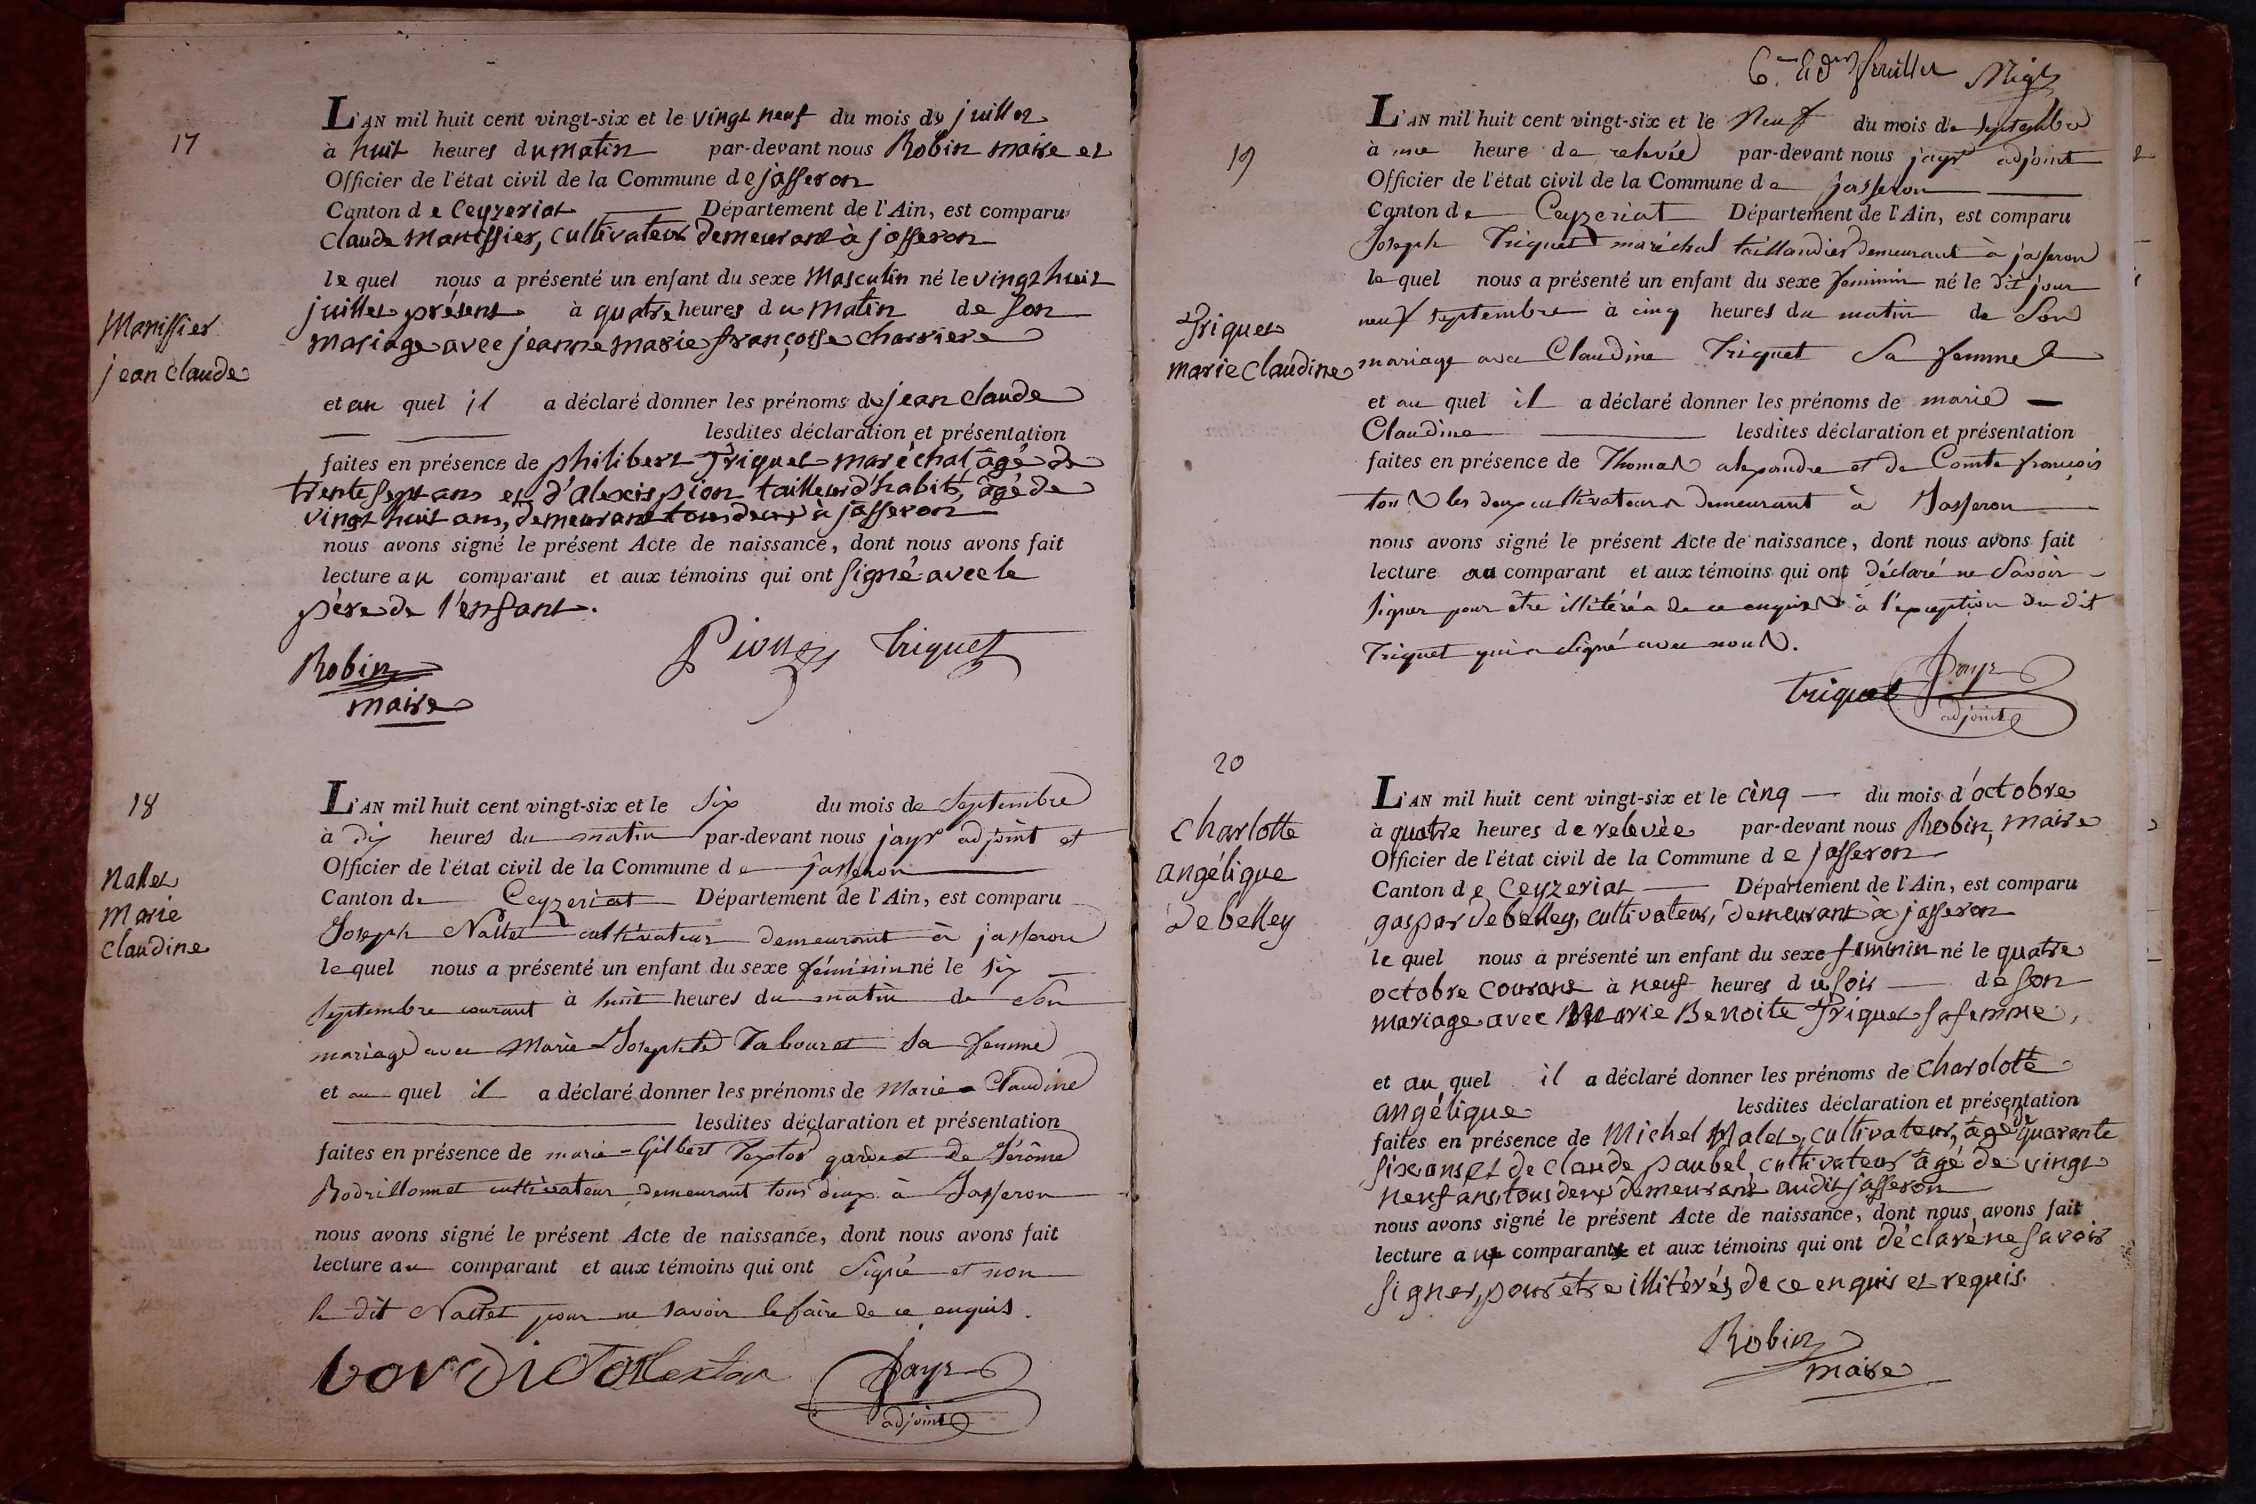 17
Manissier
jean Claude
L'AN mil huit cent vingt-six et le vingt neuf du mois de juillet
à huit heures du matin par-devant nous Robin maire et
Officier de l'état civil de la Commune de jasseron
Canton de Ceyzeriat Département de l'Ain, est comparu
Claude Manissier, cultivateur demeurant à jasseron
lequel nous a présenté un enfant du sexe Masculin né le vingt huit
juillet présent à quatre heures du matin de son
mariage avec jeanne marie françoise charriere
et au quel il a déclaré donner les prénoms de jean claude
lesdites déclaration et présentation
faites en présence de philibert Triquet maréchal, âgé de
trente sept ans et d'alexis pion tailleur d'habits, âgé de
vingt huit ans, demeurant tous deux à jasseron
nous avons signé le présent Acte de naissance, dont nous avons fait
lecture au comparant et aux témoins qui ont signé avec le
père de l'enfant.
Robin
maire
Pion Triquet
18
Nallet
Marie
Claudine
L'AN mil huit cent vingt-six et le six du mois de Septembre
à dix heures du matin par-devant nous jayr adjoint et
Officier de l'état civil de la Commune de jasseron
Canton de Ceyzeriat Département de l'Ain, est comparu
Joseph Nallet cultivateur demeurant à jasseron
lequel nous a présenté un enfant du sexe féminin né le six
Septembre courant à huit heures du matin de Son
mariage avec Marie Josephte Tabouret sa femme
et au quel il a déclaré donner les prénoms de Marie-Claudine
lesdites déclaration et présentation
faites en présence de marie-Gilbert Textor garde et de Jérôme
Bodrillonnet cultivateur demeurant tous deux à Jasseron
nous avons signé le présent Acte de naissance, dont nous avons fait
lecture au comparant et aux témoins qui ont Signé et non
le dit Nallet pour ne savoir le faire de ce enquis.
textor Jayr
adjoint
6.me et der feuillet
19
Triquet
marie Claudine
L'AN mil huit cent vingt-six et le Neuf du mois de Septembre
à une heure de relevée par-devant nous jayr adjoint
Officier de l'état civil de la Commune de jasseron
Canton de Ceyzeriat Département de l'Ain, est comparu
Joseph Triquet maréchal taillandier demeurant à jasseron
lequel nous a présenté un enfant du sexe feminin né le dit jour
neuf septembre à cinq heures du matin de Son
mariage avec Claudine Triquet Sa femme
et au quel il a déclaré donner les prénoms de marie
Claudine lesdites déclaration et présentation
faites en présence de Thomas alexandre et de Comte françois
tous les deux cultivateurs demeurant à Jasseron
nous avons signé le présent Acte de naissance, dont nous avons fait
lecture au comparant et aux témoins qui ont déclaré ne Savoir
signer pour être illitérés de ce enquis à l'exception du dit
Triquet qui a Signé avec nous.
triquet Jayr
adjoint
20
Charlotte
angélique
Debelley
L'AN mil huit cent vingt-six et le cinq du mois d'octobre
à quatre heures de relevée par-devant nous Robin, maire
Officier de l'état civil de la Commune de jasseron
Canton de Ceyzeriat Département de l'Ain, est comparu
gaspar debelley, cultivateur, demeurant à jasseron
lequel nous a présenté un enfant du sexe feminin né le quatre
octobre courant à neuf heures du soir de son
mariage avec Marie Benoite Triquet sa femme,
et au quel il a déclaré donner les prénoms de charolote
angélique lesdites déclaration et présentation
faites en présence de Michel Malet, cultivateur, âgé de quarante
six ans et de claude paubel, cultivateur âgé de vingt
neuf ans, tous deux demeurant audit jasseron
nous avons signé le présent Acte de naissance, dont nous avons fait
lecture au comparant et aux témoins qui ont déclaré ne savoir
signer, pour être illitérés, de ce enquis et requis.
Robin
maire